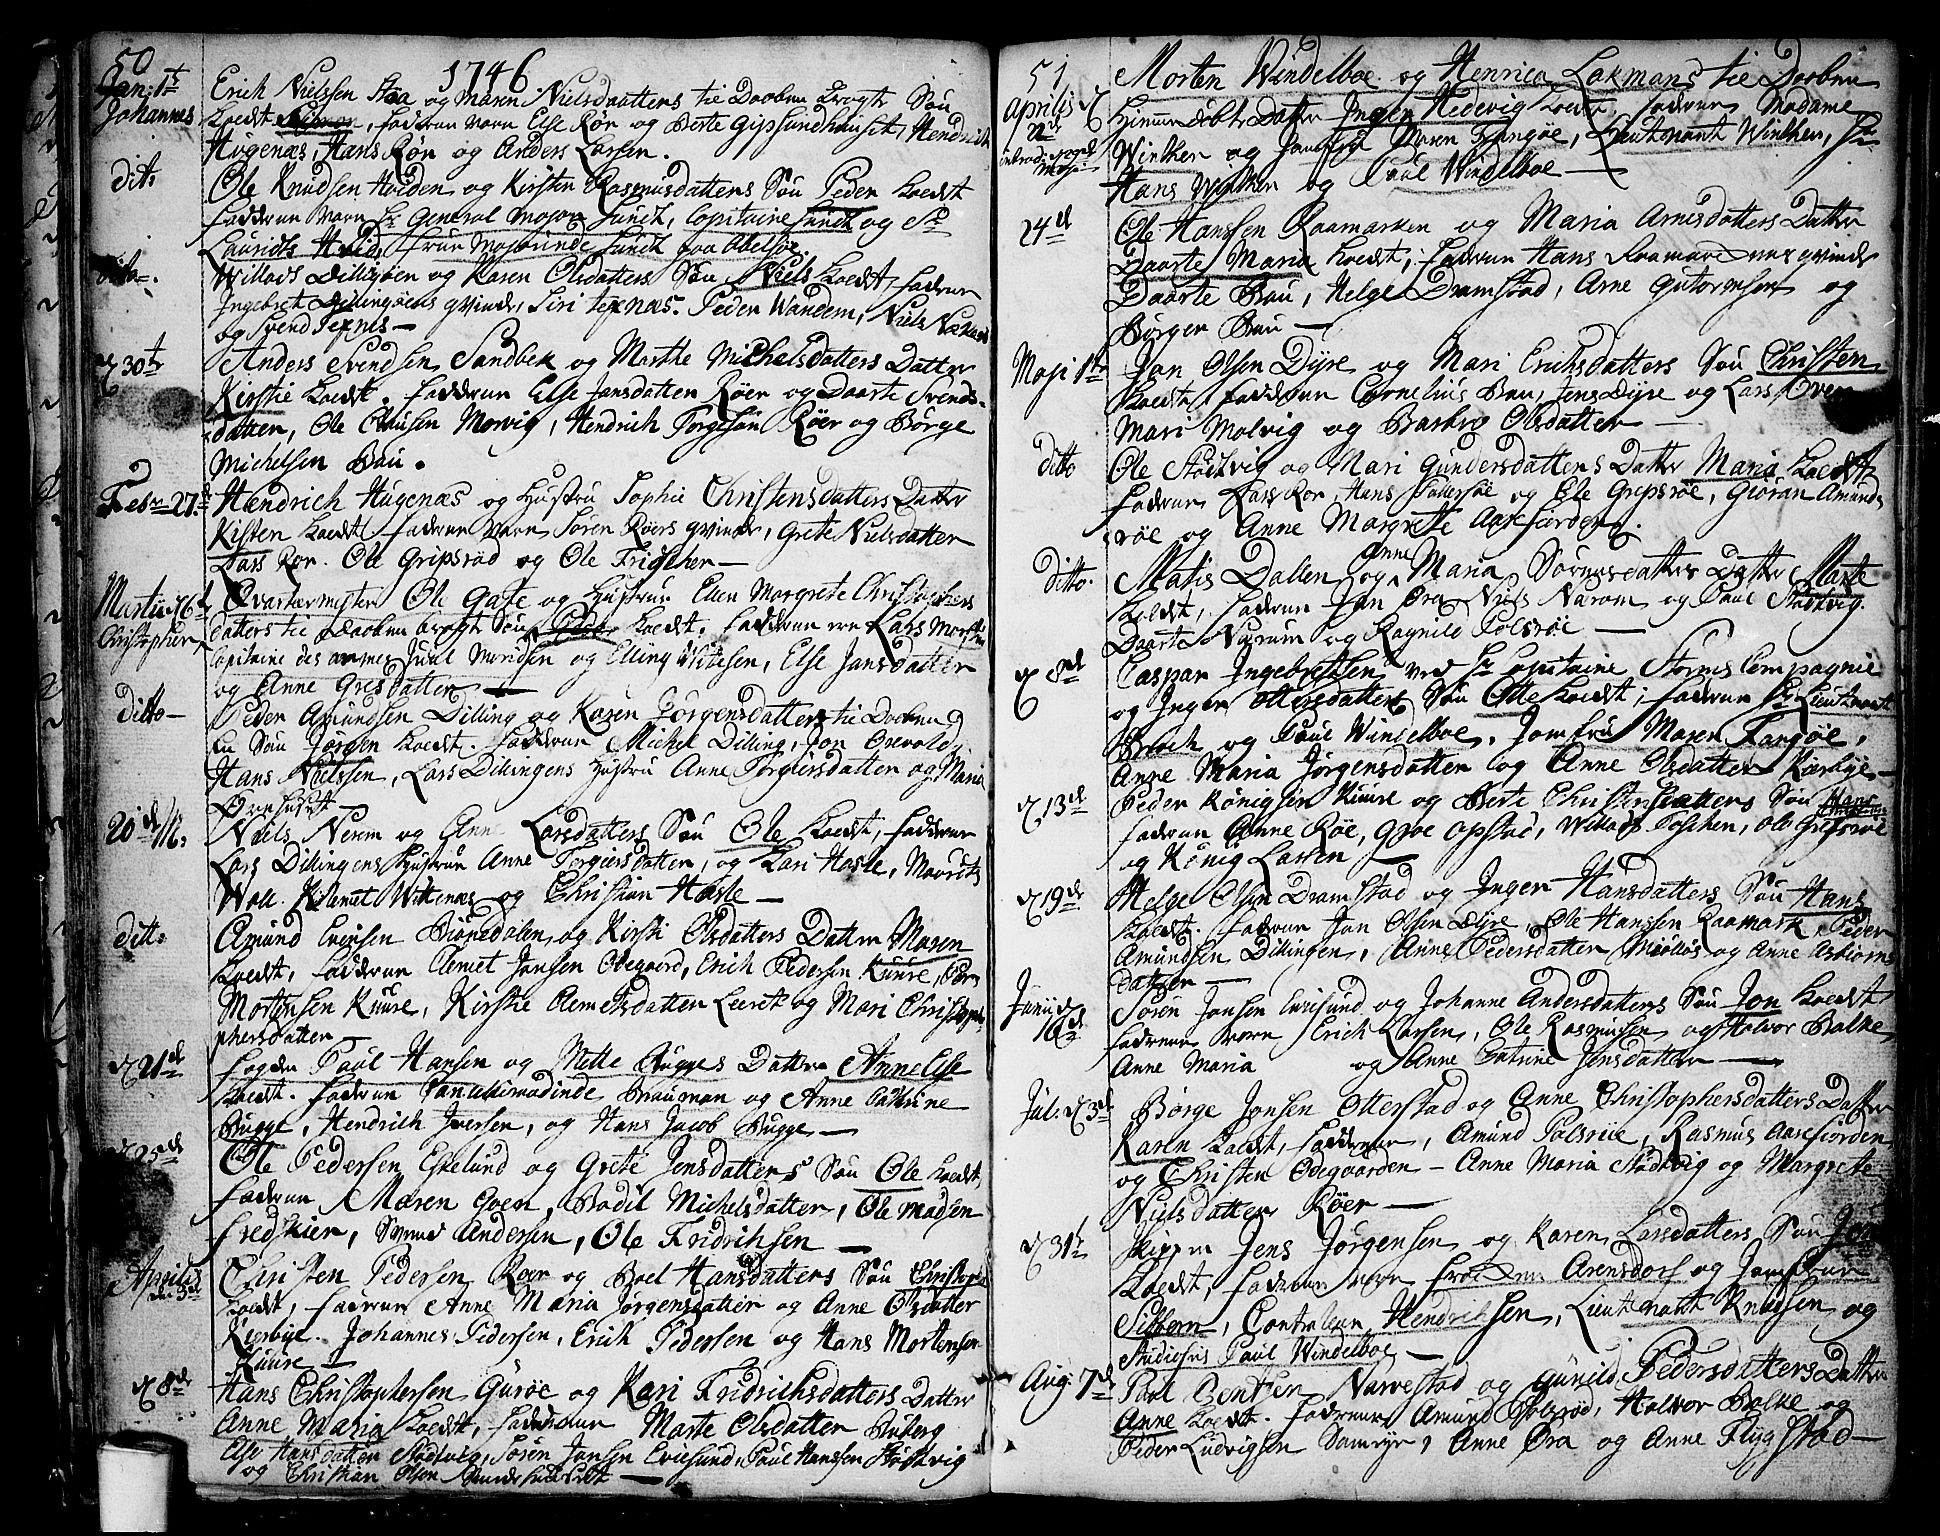 50
1746
Jan: 1te Erich Nielssen Staa og Maren Nielsdaatters til Daaben bragte Søn
Johannes kaldt, faddrer vare Else Rør og Berte Gipsundhuuset, Hendrich
Hugenæs, Hans Rør og Anders Larsen.
ditto Ole Knudsen Hviden og Kirsten Rasmusdatters Søn Peder kaldt
faddrer vare Hr General Major Sundt, Capitaine Sundt og Sr
Laurids Hvid, frue Majorinde Sundt paa Obelsøe
Ditto Willads Dillingøen og Karen Olsdatters Søn Niels kaldt, faddrer
Ingebret Dillingøens qvinde, Siri Texnæs. Peder Wandem, Niels
og Svend Texnes
d 30te Anders Svendsen Sandbek og Marthe Michelsdatters Datter
Kirstie kaldt. faddrer Else Jansdatter Röer og Daarte Svends-
datter, Ole Clausen Morvig, Hendrich Torgersøn Röer og Børge
Michelsen Bau.
Febr: 27de Hendrich Hugenæs og Hustru Sophie Christensdatters Datter
Kisten kaldt faddrer vare Søren Röers qvinde, Grete Nielsdatter
Lars Rør. Ole Gripsröd og Ole Fridschier
Martii d 6te Qvarteermester Ole Gate og Hustrue Ellen Margrete Christophers
Christopher datters til Daaben bragte Søn kaldt. faddrer ere Lars
Capitaine des armes Juul Meridsen og Elling Wittesen, Else Jansdatter
og Anne Grisdatter
ditto Peder Amundsen Dilling og Karen Jørgensdatters til Daaben
en Søn Jørgen kaldt. faddrer Michel Dilling, Jon Orevold,
Hans Nielssen, Lars Dillingens Hustru Anne Torgiersdatter og Maria
20de M: Niels Nerem og Anne Larsdatters Søn Ole kaldt, faddrer
Lars Dillingens Hustru Anne Torgiersdatter, og Kari Hasle, Mourits
Wall. Klemet Wittenæs og Christian Hasle
ditto Amund Evensen Biønedalen og Kirsti Olsdatters Datter Maren
kaldt, faddrer Clemet Jansen Odegaard, Erich Pedersen Kuure, Peder
Mortensen Kuure, Kirstie Clemetsdatter Leeret og Mari Christo-
phersdatter
d 21de fogden Paul Hansen og Mette Bugges Datter Anne Else
kaldt. faddrer Brauman og Anne Cathrine
Bugge, Hendrich Iversen, og Hans Jacob Bugge
d 25de Ole Pedersen Eskelund og Grete Jensdatters Søn Ole kaldt,
faddrer Maren Goen, Bodil Michelsdatter, Ole Madsen
fredskier, Svend Andersen, Ole Fridrichsen
Aprilis Christen Pedersen Roer og Boel Hansdatters Søn Christopher
den 3de kaldt, faddrer Anne Maria Jørgensdatter og Anne Olsdatter
Kierbye. Johannes Pedersen, Erich Pedersen og Hans Mortensen
Kuure
d 8de Hans Christophersen Gurøe og Kari Fridrichsdatters Datter
Anne Maria kaldt, faddrer Marte Olsdatter Buberg
Else Hansdatter Stødtvig, Søren Jansen Evjesund, Paul Hanssen Stødtvig
og Christian Olsøn
51
Morten Windelboe og Henrica Lakmans til Daaben
Aprilis d 22de Datter Inger Hedevig kaldt, faddrer Madame
Winther og Jomfru Maren Fangøe, Lieutenant Winther, Sr
Hans Winther og Paul Windelboe
24de Ole Hanssen Raamarken og Maria Arnesdatters Datter
Daarte Maria kaldt; faddrer Hans Raamarckens qvinde
Daarte Bau, Helge Dramstad, Arne Gutormsen og
Børger Bau
Maji 1te Jan Olsen Dyre og Mari Erichsdatters Søn Christen
kaldt, faddrer Cornelius Bau, Jens Dyre og Lars Oven
Mari Molvig og Barbro Olsdatter
ditto Ole Stødtvig og Mari Gundersdatters Datter Maria kaldt
faddrer Lars Rør, Hans Sollersøe og Ole Grepsröe, Giöran Amunds
röe og Anne Margrete Aarefiorden.
Ditto. Matis Dallen og Anne Maria Sørnsdatters Datter Marte
kaldt, faddrer Jan Øra, Niels Narom og Paul Stødtvig.
Daarte Narum og Ragnild Polsröe
d 8de Caspar Ingebretsen ved Hr Capitaine Storms Compagnie
og Inger Ottersdatters Søn Otte kaldt; faddrer Hr Lieutenant
Broch og Paul Windelboe. Jomfru Maren Fangøe,
Anne Maria Jørgensdatter og Anne Olsdatter Kierbye
d 13de Peder Königsen Kuure og Berte Christensdatters Søn Hans
faddrer Anne Röe, Opstad, Willads Joschen, Ole Grepsröe
og König Larsen
d 19de Helge Olsen Dramstad og Inger Hansdatters Søn Hans
kaldt. faddrer Jan Olsen Dyre, Ole Hanssen Raamark, Peder
Amundsen Dillingen, Anne Pedersdatter og Anne Asbiørns
datter
Junii d 16de Søren Jansen Evjesund og Johanne Andersdatters Søn Jon kaldt
faddrer vare Erich Larsen, Ole Rasmussen og Halvor Balke
Anne Maria og Anne Catrine Jensdatter
Jul: d 3de Børge Jonsen Otterstad og Anne Christophersdatters Datter
Karen kaldt, faddrer, Amund Polsröe, Rasmus Aarefiorden
og Christen Odegaarden - Anne Maria Stødtvig og Margrete
Nielsdatter Röer
d 31te Skipper Jens Jørgensen og Karen Larsdatters Søn Jens
kaldt, faddrer vare frøiden Arensdorf og Jomfrue
Sibbern, Contraleur Hendrichsen, Lieutenant Knudsen og
Studiosus Paul Windelboe
Aug: 7de Poul Bentsen Narvestad og Gunild Pedersdatters Datter
Anne kaldt. faddrer Amund Polsröd, Halvor Balke og
Peder Ludvigsen Damryr, Anne Øra og Anne Flygstad